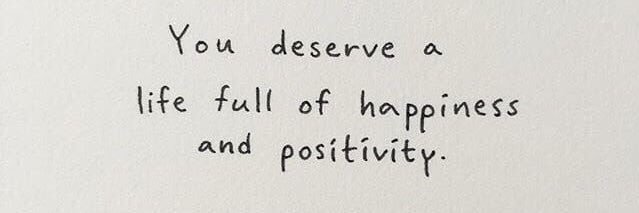 You deserve a
life full of happiness
and positivity.